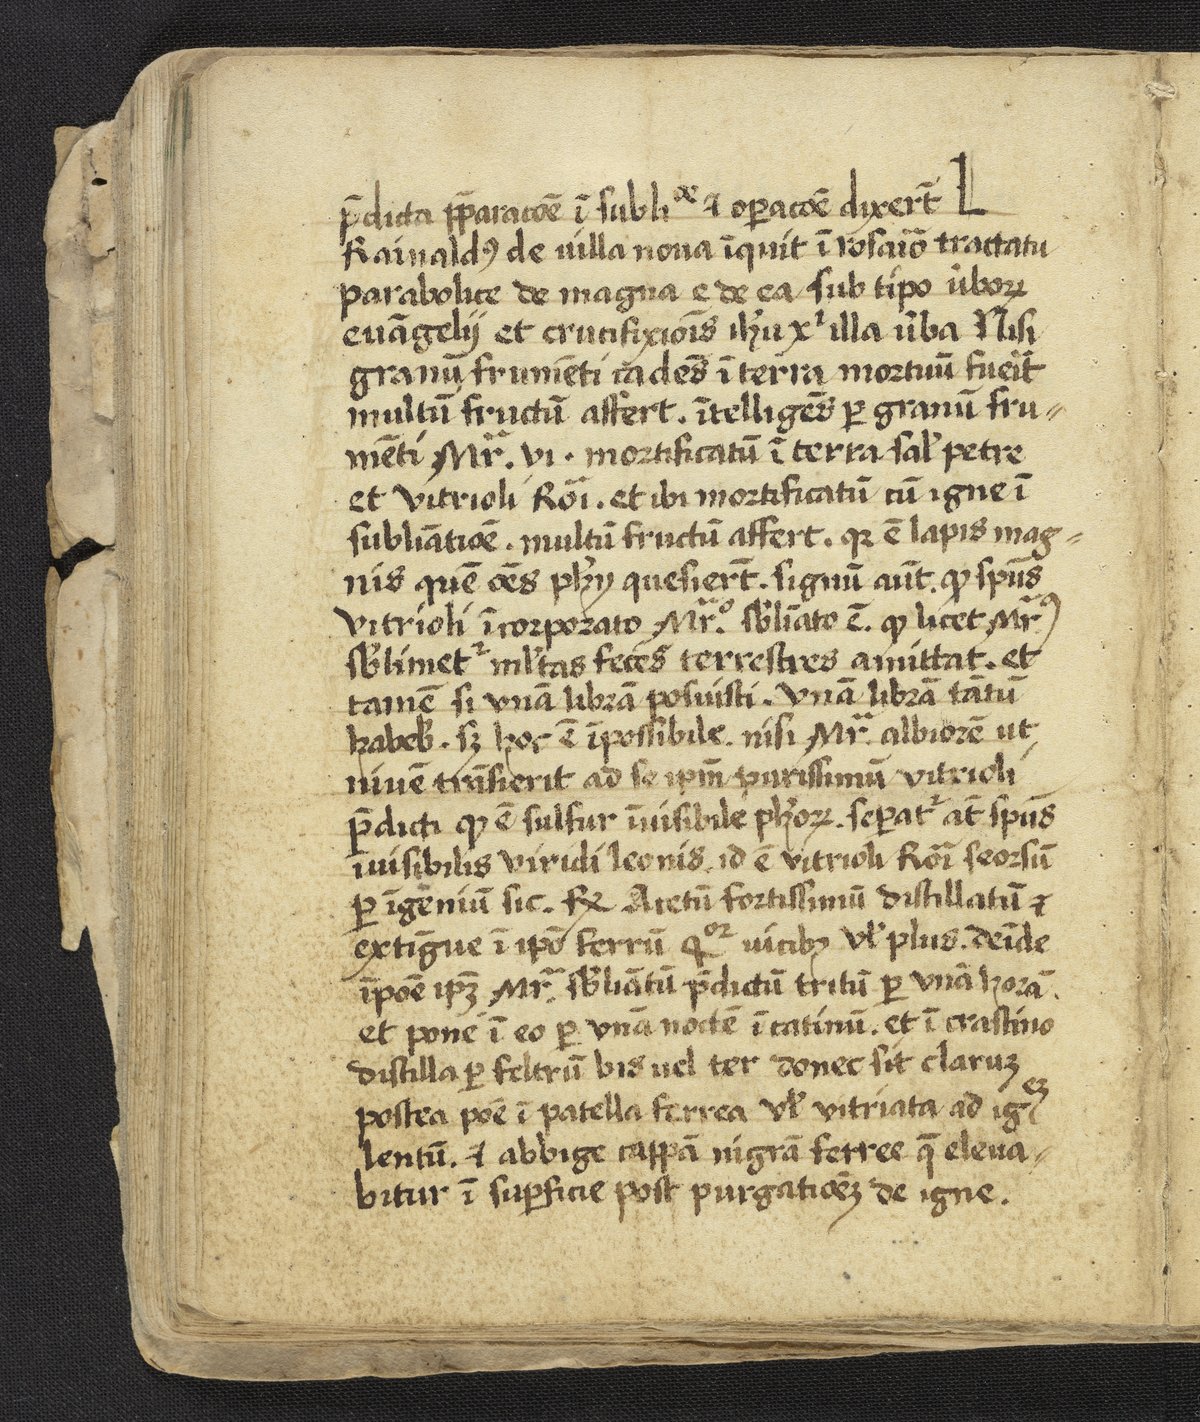 p̄dicta p̄paracōē ī subliōe ⁊ oꝑacōē dixert̄ L
Rainaldꝰ de uilla noua īquit ī rosaīō tractatu
parabolice de magna e de ea sub tipo ūboꝝ
euāgelij et crucifixiōīs iħu xᶦ illa ūba Nisi
granū frumēti cadēs ī terra mortuū fueīt
multū fructū affert. ītelligēs ꝑ granū fru-
mēti Mr̄. vi. mortificatū ī terra sal' petre
et vitrioli Roī. et ibi mortificatū cū igne ī
subliātiōē. multū fructū affert. qꝛ ē lapis mag-
nis quē ōēs pħy quesiert̄. signū aūt. ꝙ spūs
vitrioli īcorporato Mr̄º. sƀliāto ē. ꝙ licet Mr̄ꝰ
sƀlimetᶦ ml'tas feces terrestres amittat. et
tamē si vnā librā posuisti. vnā librā tātū
habeƀ. sꝫ hoc ē īpossibile. nisi Mr̄. albiorē ut
niuē trāsierit ad se ip̄m purissimū vitrioli
p̄dicti ꝙ ē sulfur īuisibile pħoꝝ. seꝑatᶦ āt spūs
īuisibilis viridi leonis. id ē vitrioli Roī seorsū
ꝑ īgēniū sic. Rx Acetū fortissimū distillatū ⁊
extīgue ī ipō ferrū qᵒʳ uicibꝫ vl' plus. deīde
īpōē ipꝫ Mr̄. sƀliātū p̄dictū tritū ꝑ vnā horā.
et pone ī eo ꝑ vnā noctē ī catinū. et ī crastino
distilla ꝑ feltrū bis uel ter donec sit claruꝫ
postea pōē ī patella ferrea vl' vitriata ad ignēꝫ
lentū. ⁊ abbige cappā nigrā ferree q̄ eleua-
bitur ī suꝑficie post purgatiōēꝫ de igne.